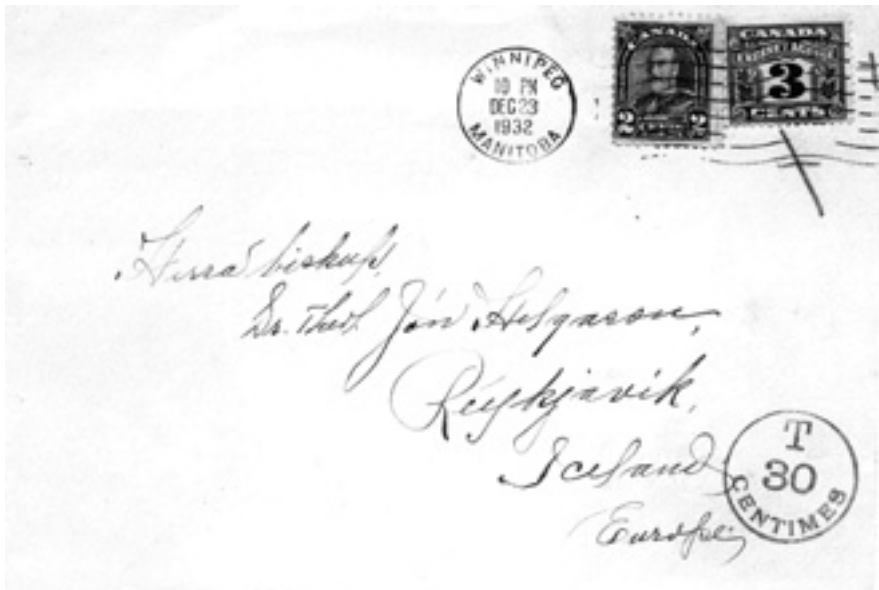 WINNIPEG
10 PM
DEC 23
1932
MANITOBA
CANADA
2 2
CANADA
3
CENTS
Herra biskup,
Dr. theol. Jón Helgason,
Reykjavik,
Iceland
Europe,
T
30
CENTIMES